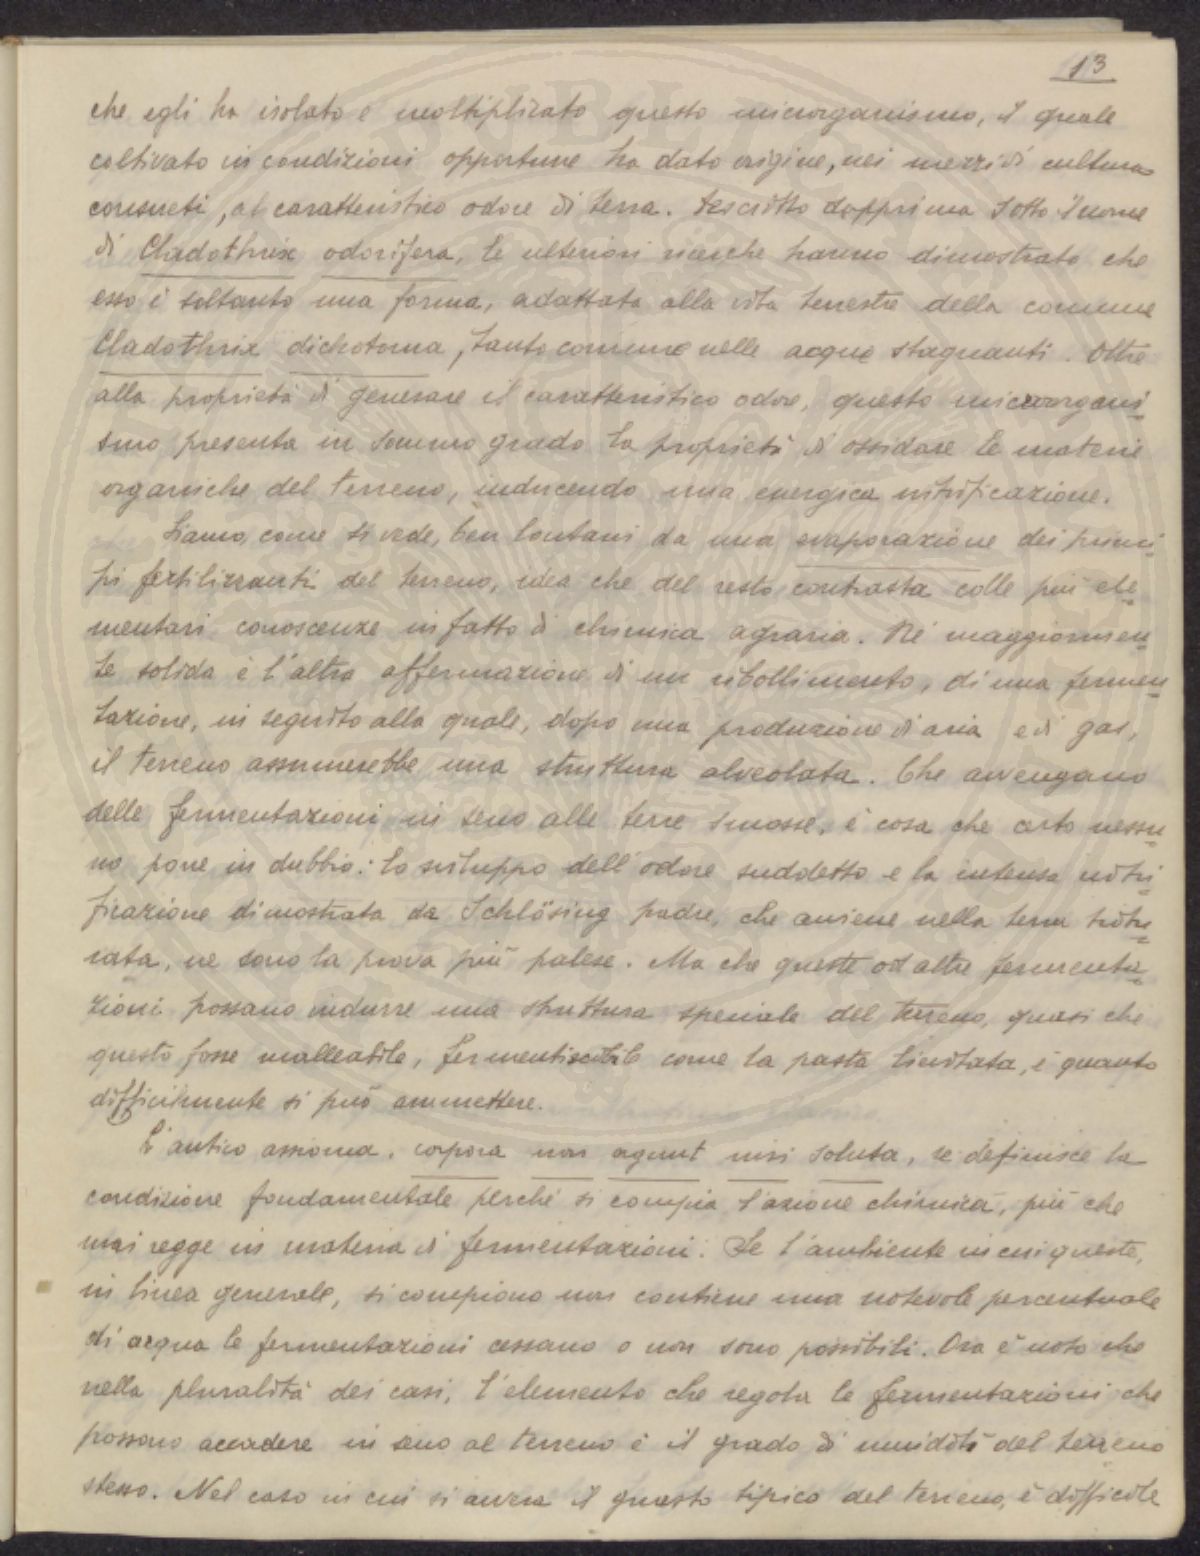 13
che egli ha isolato e moltiplicato questo microrganismo, il quale
coltivato in condizioni opportune ha dato origine, nei mezzi di cultura
consueti, al caratteristico odore di terra. Descritto dapprima sotto il nome
di Cladothrix odorifera, le ulteriori ricerche hanno dimostrato che
esso è soltanto una forma, adattata alla vita terrestre della comune
Cladothrix dichotoma, tanto comune nelle acque stagnanti. Oltre
alla proprietà di generare il caratteristico odore, questo microrgani=
smo presenta in sommo grado la proprietà di ossidare le materie
organiche del terreno, inducendo una energica nitrificazione.
Siamo, come si vede, ben lontani da una evaporazione dei princi=
pi fertilizzanti del terreno, idea che del resto contrasta colle più ele=
mentari conoscenze in fatto di chimica agraria. Nè maggiormen=
te solida è l'altra affermazione di un ribollimento, di una fermen=
tazione, in seguito alla quale, dopo una produzione di aria e di gas,
il terreno assumerebbe una struttura alveolata. Che avvengano
delle fermentazioni in seno alle terre smosse, è cosa che certo nessu=
no pone in dubbio: lo sviluppo dell'odore suddetto e la intensa nitri=
ficazione dimostrata da Schlösing padre, che avviene nella terra tritu=
rata, ne sono la prova più palese. Ma che queste od altre fermenta=
zioni possano indurre una struttura speciale del terreno, quasi che
questo fosse malleabile, fermentiscibile come la pasta lievitata, è quanto
difficilmente si può ammettere.
L'antico assioma, corpora non agunt nisi soluta, se definisce la
condizione fondamentale perchè si compia l'azione chimica, più che
mai regge in materia di fermentazioni. Se l'ambiente in cui queste,
in linea generale, si compiono non contiene una notevole percentuale
di acqua le fermentazioni cessano o non sono possibili. Ora è noto che
nella pluralità dei casi, l'elemento che regola le fermentazioni che
possono accadere in seno al terreno è il grado di umidità del terreno
stesso. Nel caso in cui si avvera il guasto tipico del terreno, è difficile